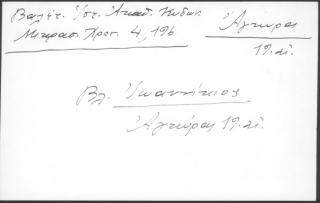 Βαλέτ. Ὑστ. Ἀκαδ. Κυδων.
Μικρασ. Χρον. 4, 196
Ἀγκύρας
19. αἰ.
Βλ. Ἰωαννίκιος
Ἀγκύρας 19. αἰ.